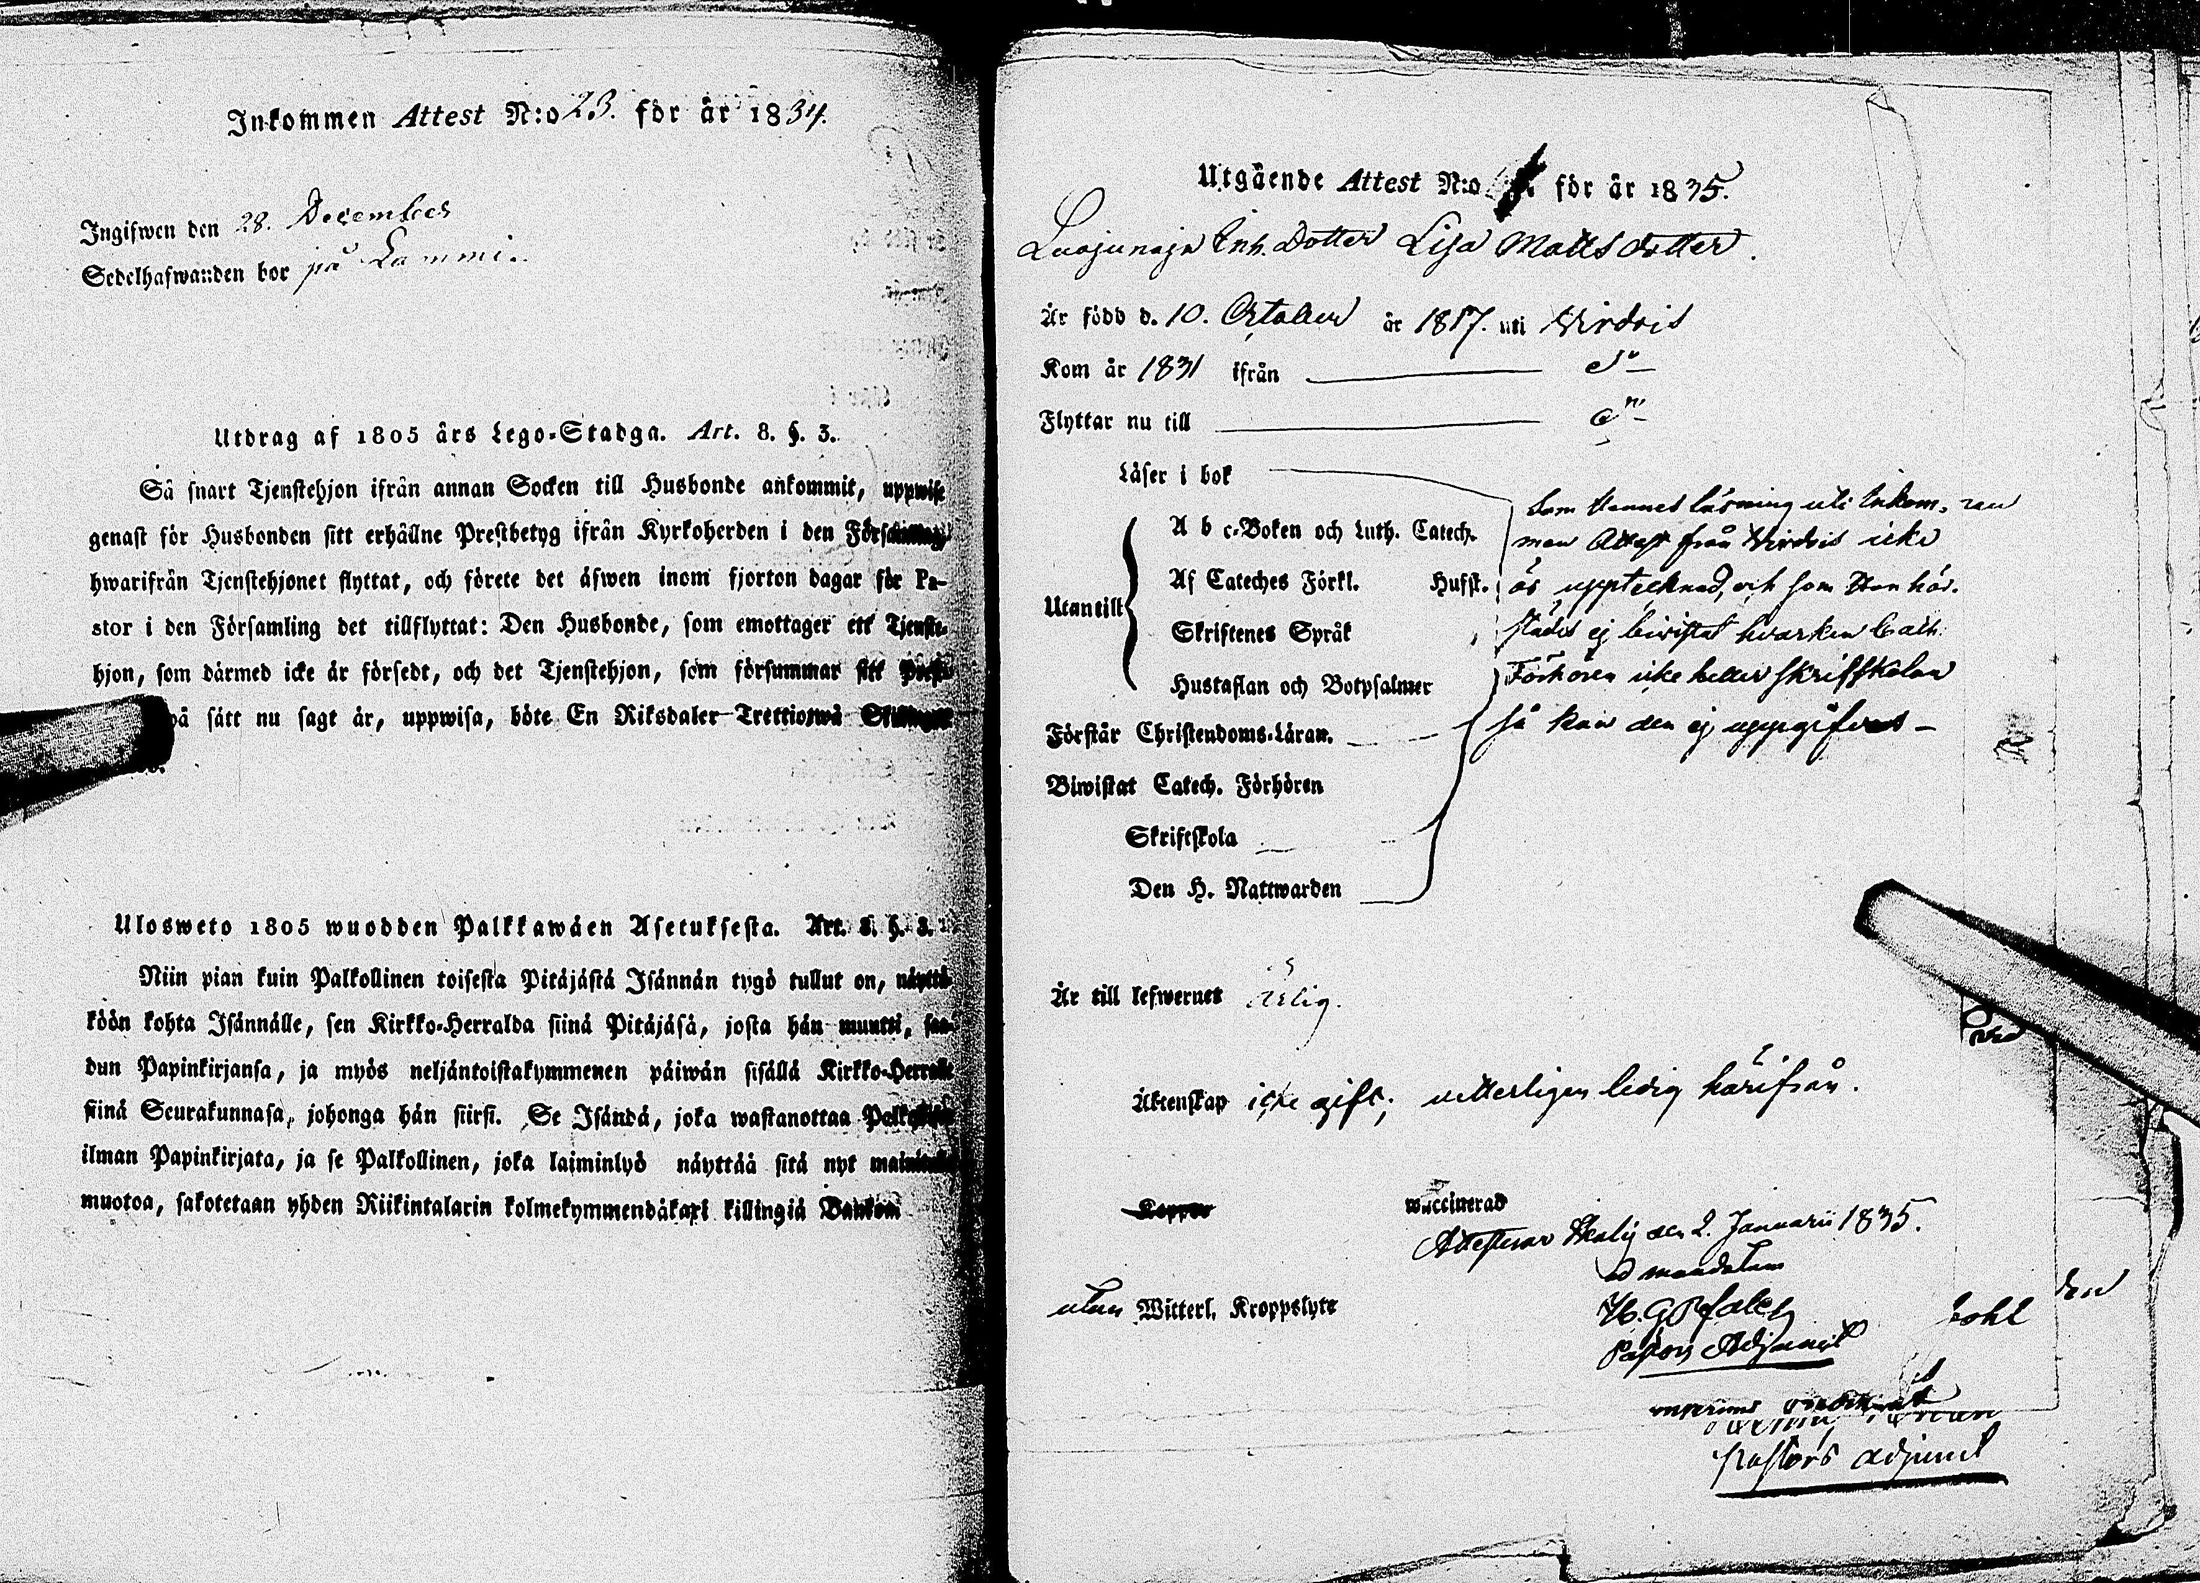 Inkommen Attest N:o 23. för år 1834.
Ingifwen den 28. December
Sedelhafwanden bor på Lammi.
Utdrag af 1805 års Lego-Stadga. Art. 8. §. 3.
Så snart Tjenstehjon ifrån annan Socken till Husbonde ankommit, uppwise
genast för Husbonden sitt erhållne Prestbetyg ifrån Kyrkoherden i den Församling
hwarifrån Tjenstehjonet flyttat, och förete det äfwen inom fjorton dagar för Pa-
stor i den Församling det tillflyttat: Den Husbonde, som emottager ett Tjenste-
hjon, som därmed icke är försedt, och det Tjenstehjon, som försummar sitt
på sätt nu sagt är, uppwisa, böte En Riksdaler Trettiotwå
Ulosweto 1805 wuodden Palkkawäen Asetuksesta. Art. 8. §. 3.
Niin pian kuin Palkollinen toisesta Pitäjästä Isännän tygö tullut on, näyttä-
köön kohta Isännälle, sen Kirkko-Herralda siinä Pitäjäsä, josta hän muutti, saa-
dun Papinkirjansa, ja myös neljäntoistakymmenen päiwän sisällä Kirkko-Herralle
siinä Seurakunnasa, johonga hän siirsi. Se Isändä, joka wastanottaa
ilman Papinkirjata, ja se Palkollinen, joka laiminlyö näyttää sitä nyt
muotoa, sakotetaan yhden Riikintalarin kolmekymmendäkaxi killingiä Bankosa
Utgående Attest N:o för år 1835.
Inh. Dotter Lisa Matts dotter.
År född d. 10. October år 1817. uti Virdois
Kom år 1831 ifrån
Flyttar nu till
Läser i bok
Som Hennes läsning uti Inkom-
A b c-Boken och Luth. Catech.
men Attest från Virdois icke
Utantill Af Cateches Förkl. Husst.
är upptecknad, och som Hon här-
Skriftenes Språk
städes ej bivistat hvarken Cath:
Hustaflan och Botpsalmer
Förhören icke heller Skriftskolan
Förstår Christendoms-Läran.
så kan den ej uppgifvas -
Biwistat Catech. Förhören
Skriftskola
Den H. Nattwarden
Är till lefwernet ärlig.
Äktenskap icke gift; vitterligen ledig härifrån.
Koppor waccinerad
Attesterar den 2. Januarii 1835.
ad mandatum
utan Witterl. Kroppslyte
Pastors Adjunct
Pastors adjunct